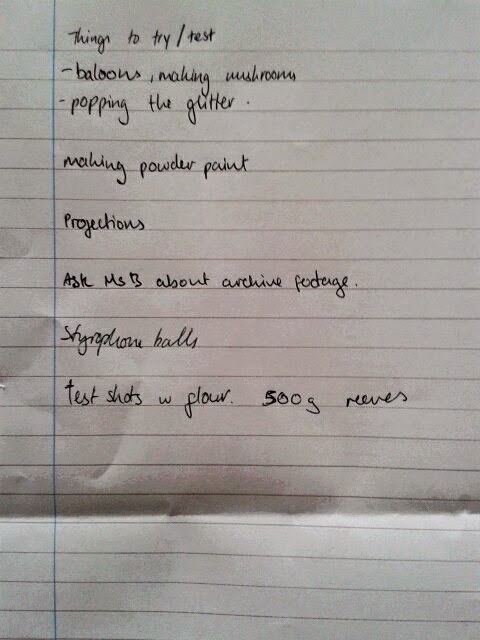 Things to try/test
- baloons, making mushrooms
- popping the glitter.
making powder paint
Projections
Ask Ms B about archive footage.
Styrophone balls
test shots w flour. 500g reeves